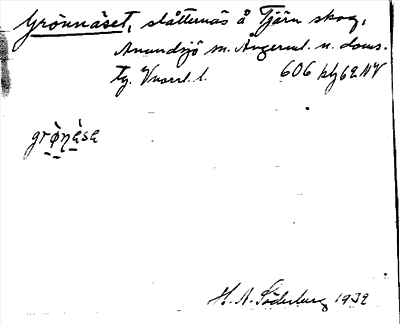 Grönnäset, slåttenäs å Tjärn skog,
Anundsjö sn. Ångerml. n. doms.
tg. Vnorrl. l. 606 kbl 62 NV
grø̀nǽsa
H. A. Söderberg 1932